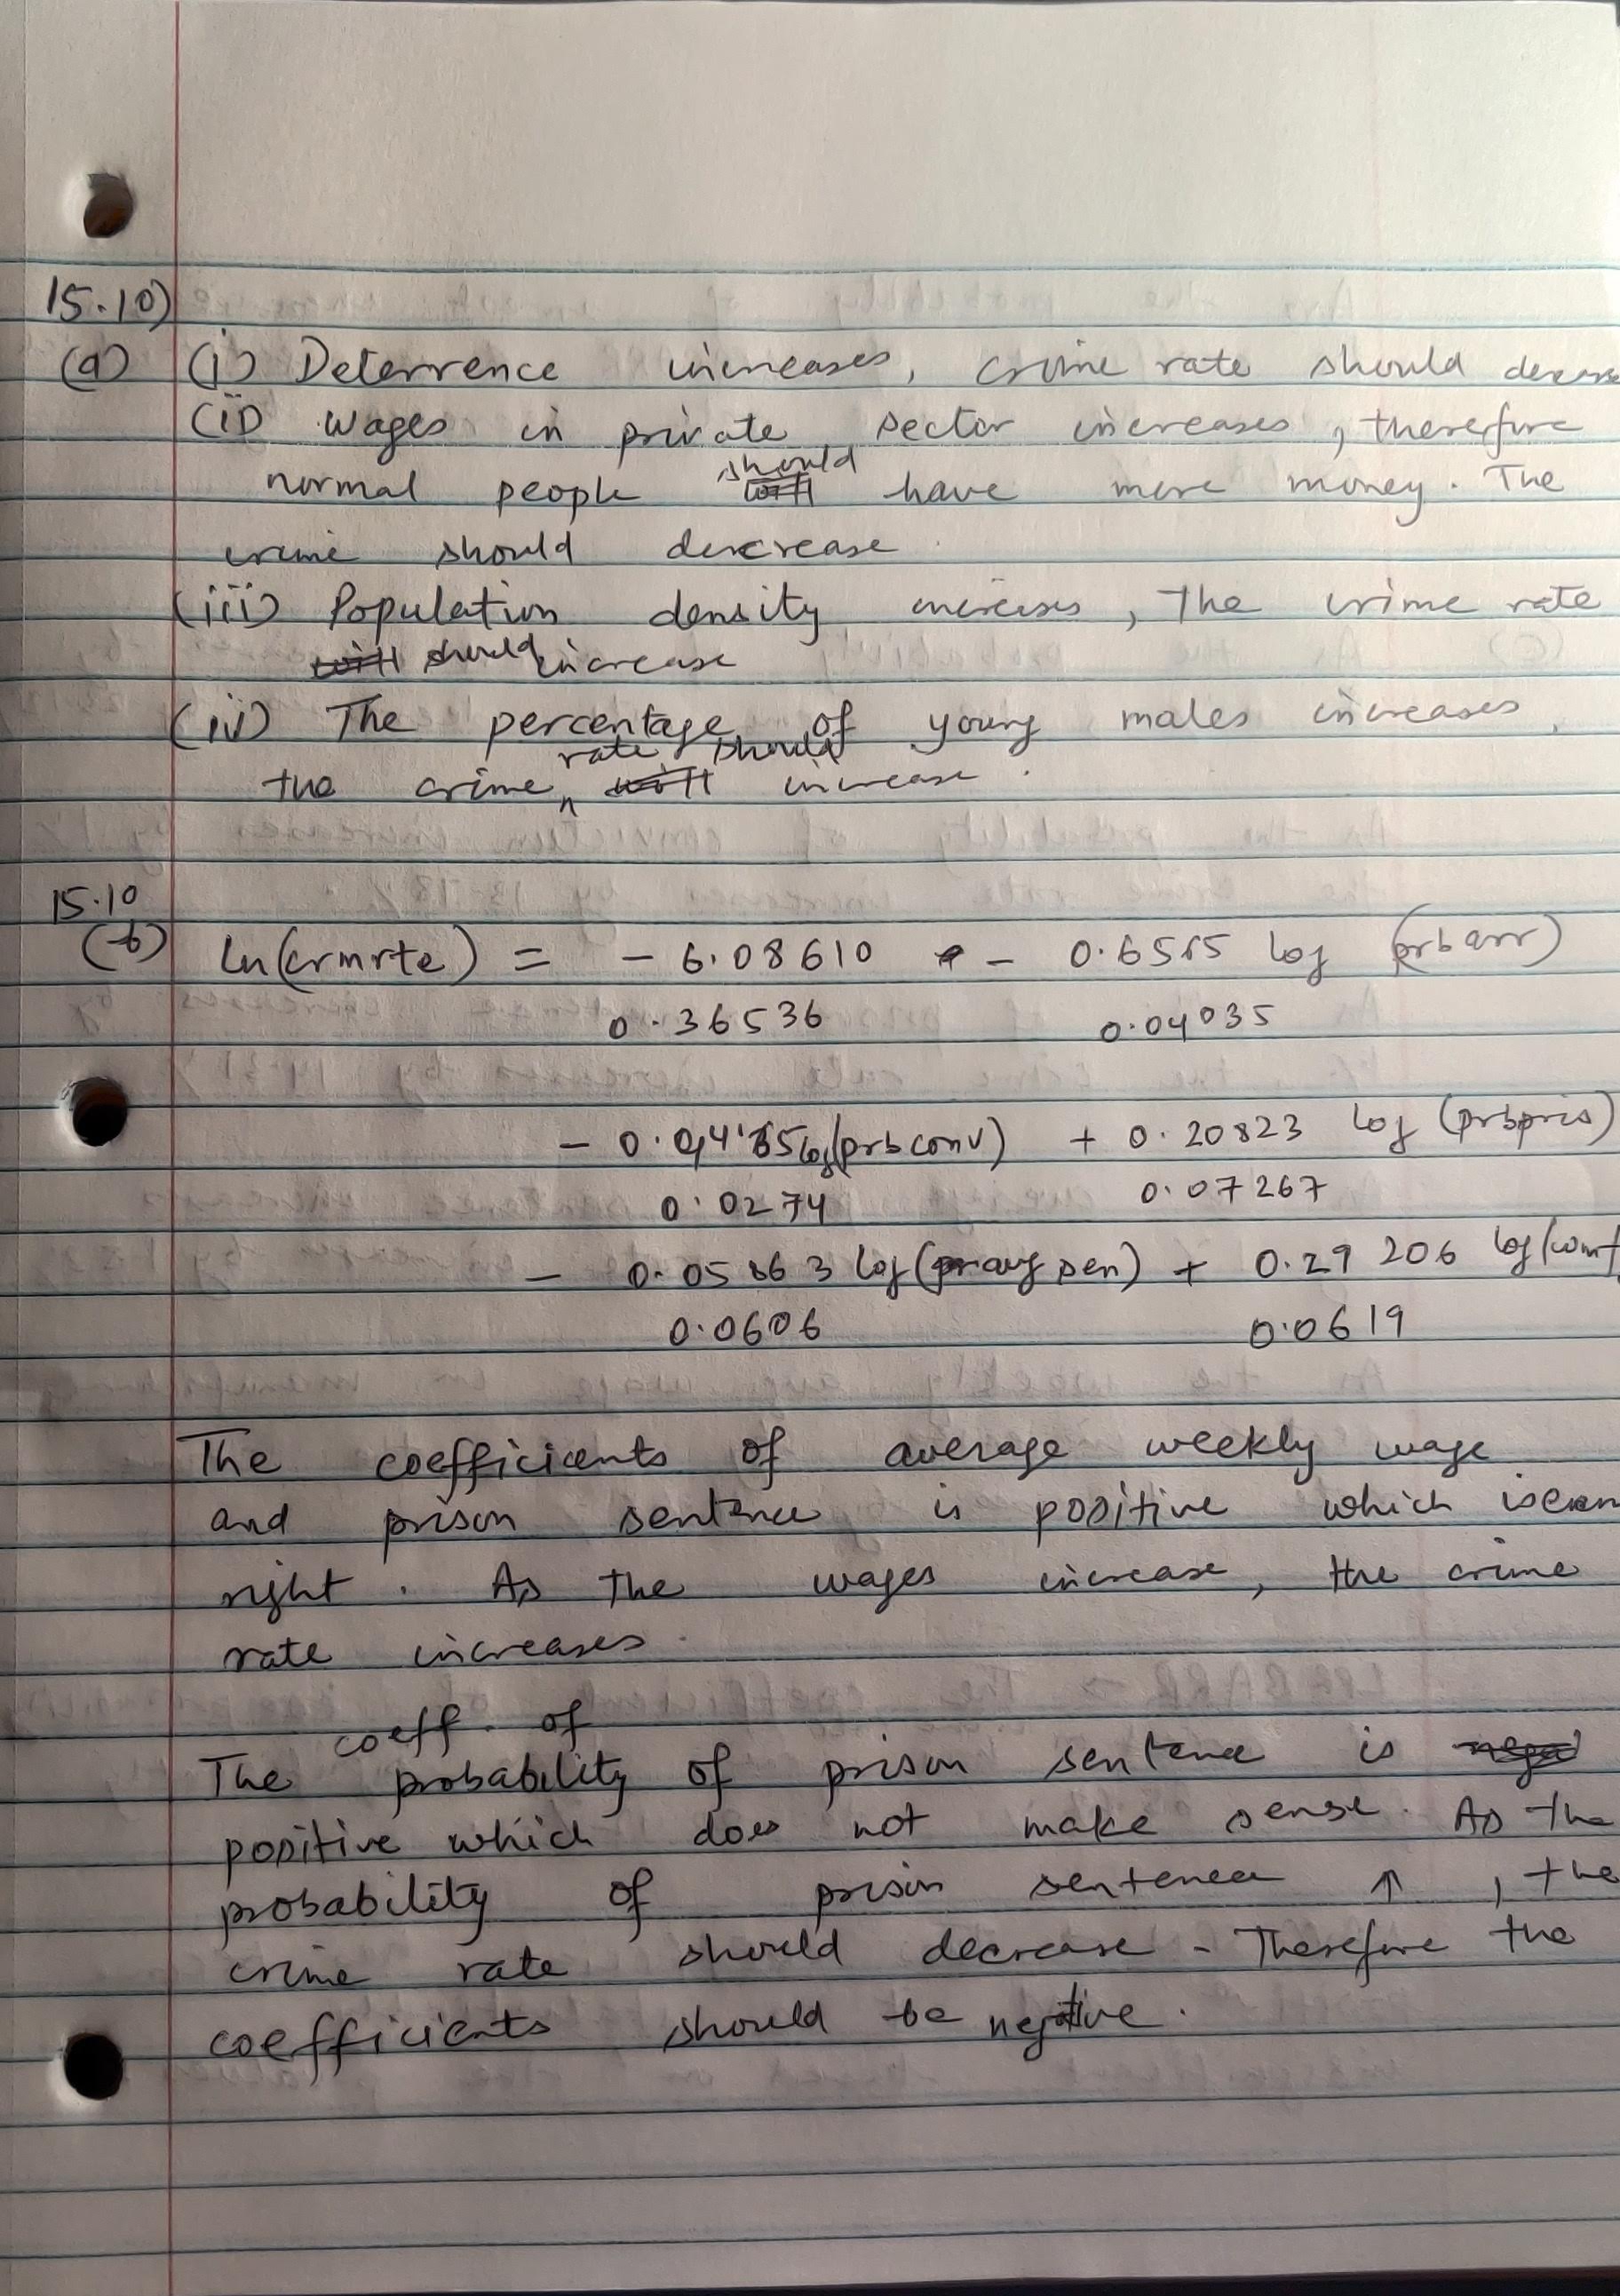 15.10)
(a) (i) Deterrence increases, crime rate should
(ii) Wages in private sector increases, therefore
normal people should have more money. The
crime should decrease.
(iii) Population density increases, The crime rate
should increase
(iv) The percentage of young males increases,
the crime rate should increase.
15.10
(b) ln(crmrte) = - 6.08610 - 0.6515 log (prbarr)
0.36536 0.04035
- log(prbconv) + 0.20823 log (prbpris)
0.0274 0.07267
- 0.05863 log(avgsen) + 0.29206 log
0.0606 0.0619
The coefficients of average weekly wage
and prison sentence is positive which
right. As the wages increase, the crime
rate increases.
The coeff. of probability of prison sentence is
positive which does not make sense. As the
probability of prison sentence ↑, the
crime rate should decrease - Therefore the
coefficients should be negative.